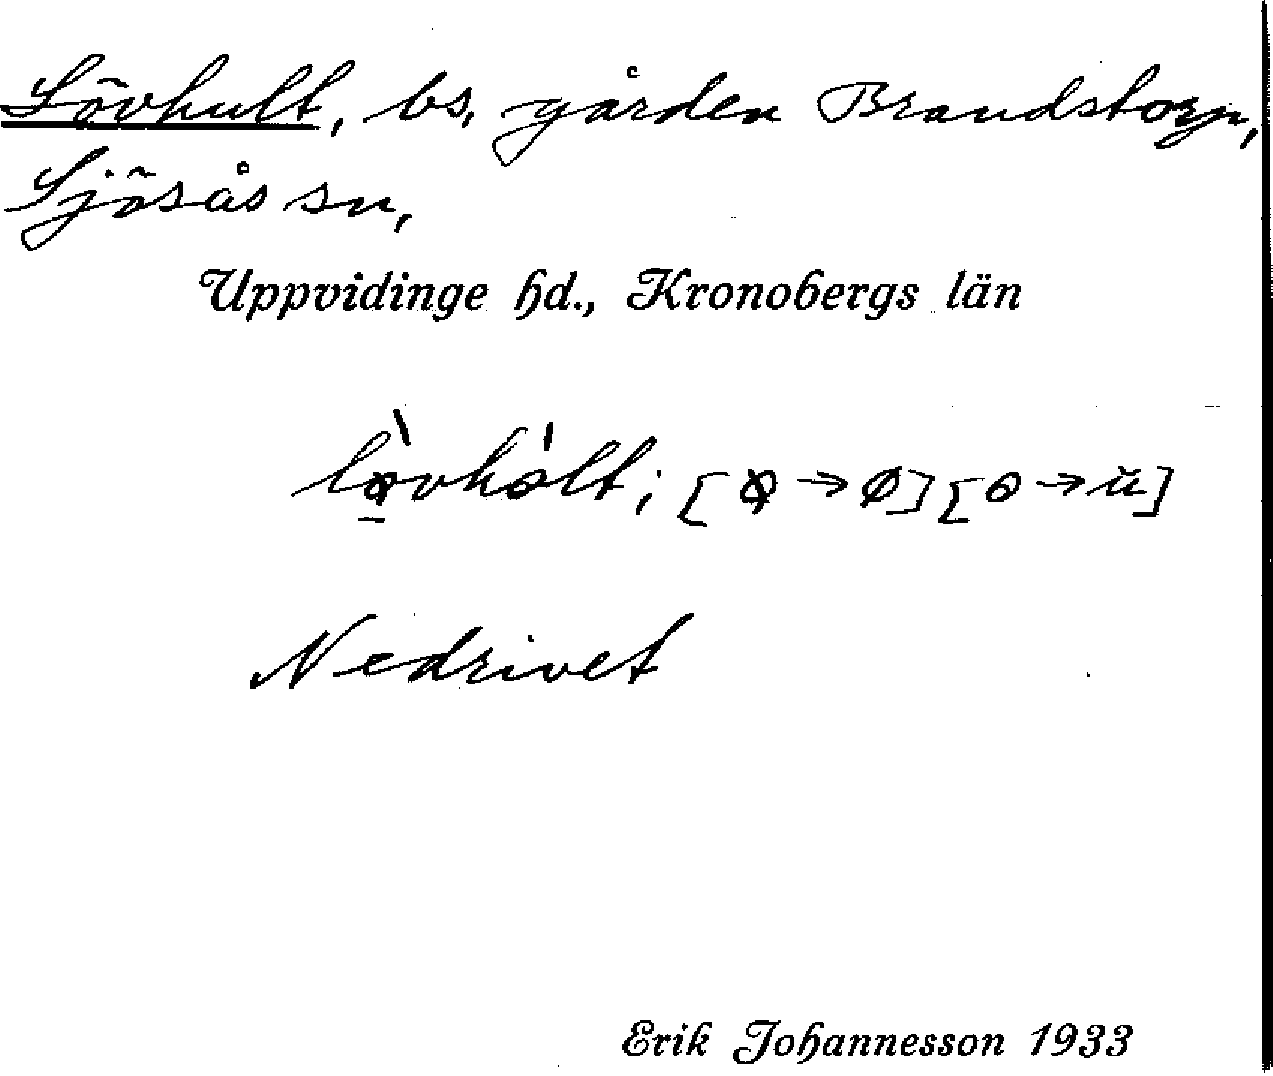 Lövhult, bs, gården Brandstorp,
Sjösås sn,
Uppvidinge hd., Kronobergs län
Nedrivet
Erik Johannesson 1933